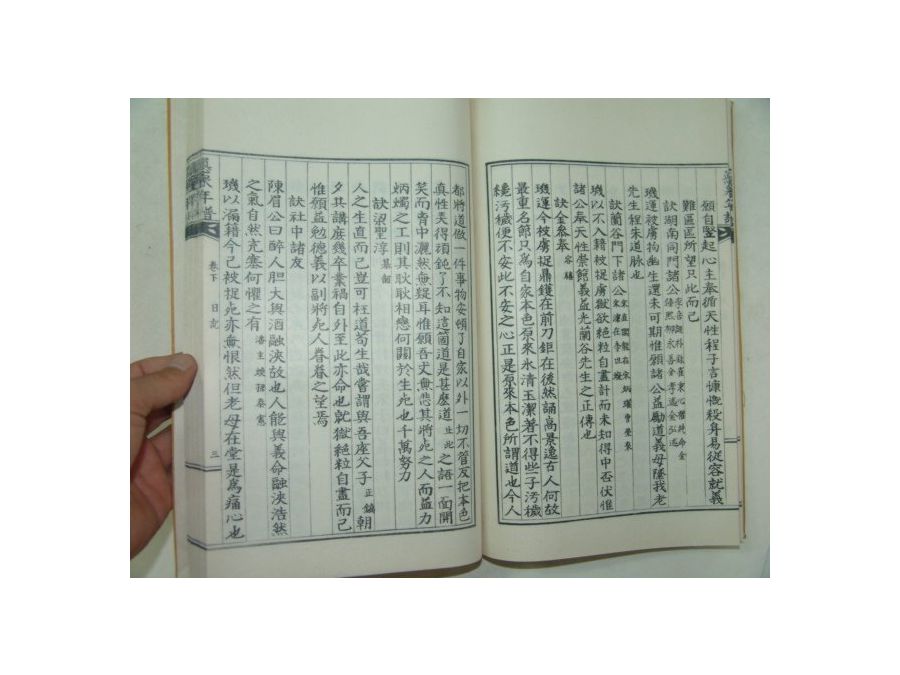 願自竪起心主奉循天性程子言慷慨殺身易從容就義
難區區所望只此而已
訣湖南同門諸公
璣運被虜拘幽生還未可期惟願諸公益勵道義毋墜我老
先生程朱道脉也
訣蘭谷門下諸公
璣以不入籍被捉虜獄欲絕粒自盡計而未知得中否伏惟
諸公奉天性崇館義益光蘭谷先生之正傳也
訣金參奉 容鏞
璣運今被虜捉鼎鑊在前刀鉅在後然誦高景逸古人何故
最重名節只爲自家本色原來氷清玉潔著不得些子汚穢
纔汚穢便不安此不安之心正是原來本色所謂道也今人
都將道做一件事物安頓了自家以外一切不管友把本色
真性弄得頑鈍了不知這箇道是甚麽道 止此 之語一面開
笑而胷中灑然無疑耳惟願吾丈無悲其將死之人而益力
炳燭之工則其耿耿相戀何關於生死也千萬努力
訣梁聖淳 基韶
人之生直而已豈可枉道苟生哉嘗謂與吾座父子 正鎬 朝
夕其講庶幾卒業禍自外至此亦命也就獄絕粒自盡而已
惟願益勉德義以副將死人眷眷之望焉
訣社中諸友
陳眉公曰醉人胆大與酒融浹故也人能與義命融浹浩然
之氣自然充塞何懼之有
璣以漏籍今已被捉死亦無恨然但老母在堂是爲痛心也
年譜
卷下
日記
三